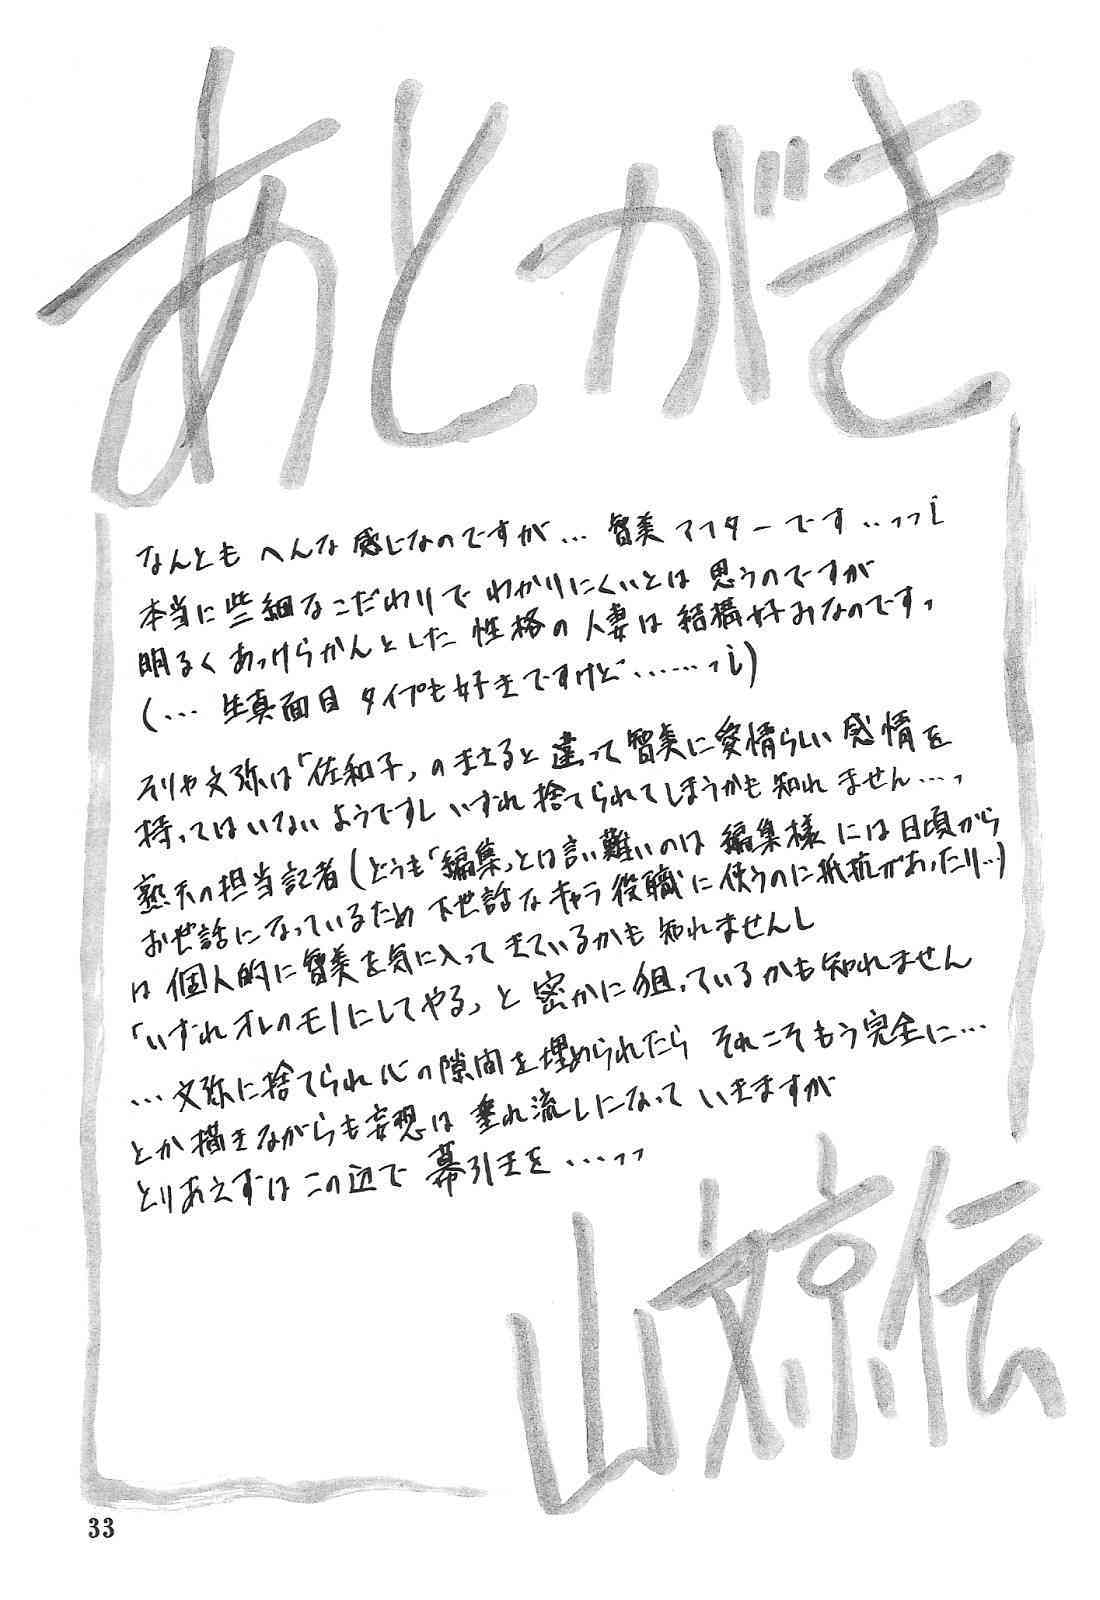 あとがき
なんとも へんな 感じなのですが… 智美アフターです…っっ；
本当に些細なこだわりで わかりにくいとは 思うのですが
明るく あっけらかんとした 性格の 人妻は 結構好みなのです、
(… 生真面目 タイプも好きですけど……っ；)
そりゃ文弥は「佐和子」のまさると違って智美に愛情らしい感情を
持ってはいないようですし いずれ捨てられてしまうかも知れません…っ
熟天の担当記者(どうも「編集」とは言い難いのは 編集様には日頃から
お世話になっているため 下世話なキャラ役職に使うのに抵抗があったり…)
は個人的に智美を気に入ってきているかも知れませんし
「いずれオレのモノにしてやる」と密かに狙っているかも知れません
…文弥に捨てられ心の隙間を埋められたら それこそもう完全に…
とか描きながらも妄想は 垂れ流しになって いきますが
とりあえずはこの辺で 幕引きを…っっ
山文京伝
33